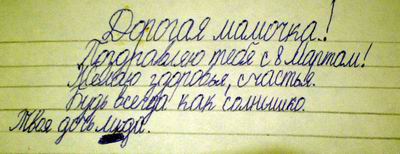 Дорогая мамочка!
Поздравляю тебе с 8 мартом!
Желаю здоровья, счастья.
Будь всегда как солнышко.
Твоя дочь Люда.